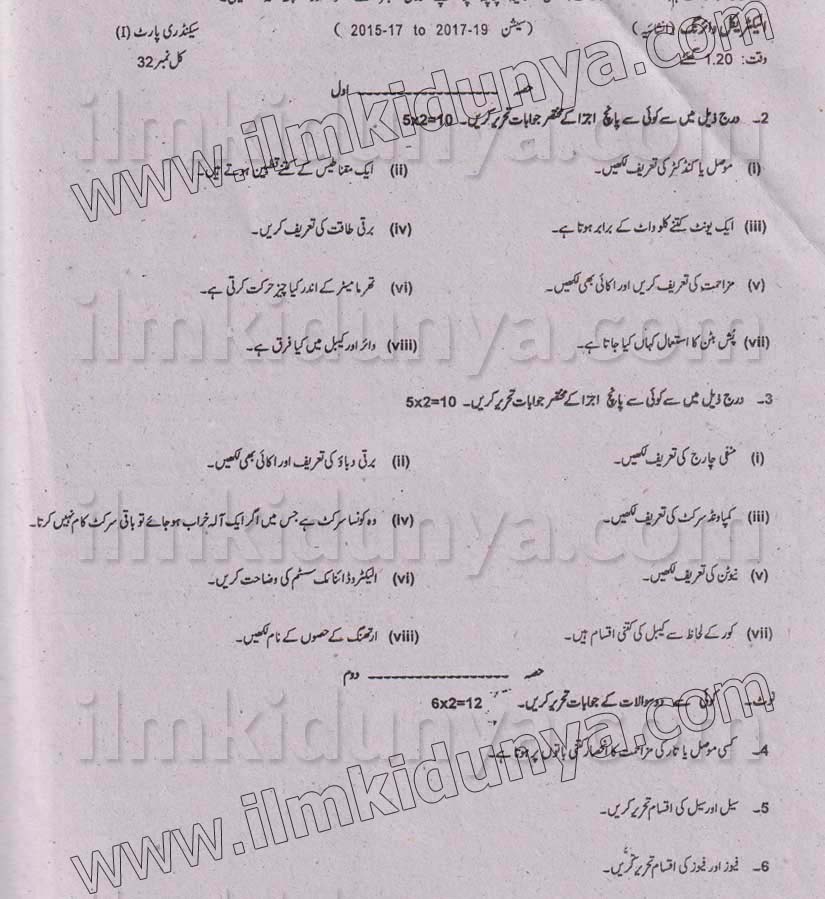 الیکٹریکل وائرنگ (انشائیہ) (سیشن 2015-17 to 2017-19) سیکنڈری پارٹ (I)
وقت: 1.20 گھنٹے کل نمبر 32
حصہ ــــــــــــــــــــ اول
2۔ درج ذیل میں سے کوئی سے پانچ اجزا کے مختصر جوابات تحریر کریں۔ 5x2=10
(i) موصل یا کنڈکٹر کی تعریف لکھیں۔ (ii) ایک مقناطیس کے کتنے قطبین ہوتے ہیں۔
(iii) ایک یونٹ کتنے کلو واٹ کے برابر ہوتا ہے۔ (iv) برقی طاقت کی تعریف کریں۔
(v) مزاحمت کی تعریف کریں اور اکائی بھی لکھیں۔ (vi) تھرمامیٹر کے اندر کیا چیز حرکت کرتی ہے۔
(vii) پُش بٹن کا استعمال کہاں کیا جاتا ہے۔ (viii) وائر اور کیبل میں کیا فرق ہے۔
3۔ درج ذیل میں سے کوئی سے پانچ اجزا کے مختصر جوابات تحریر کریں۔ 5x2=10
(i) منفی چارج کی تعریف لکھیں۔ (ii) برقی دباؤ کی تعریف اور اکائی بھی لکھیں۔
(iii) کمپاونڈ سرکٹ کی تعریف لکھیں۔ (iv) وہ کونسا سرکٹ ہے جس میں اگر ایک آلہ خراب ہو جائے تو باقی سرکٹ کام نہیں کرتا۔
(v) نیوٹن کی تعریف لکھیں۔ (vi) الیکٹرو ڈائنامک سسٹم کی وضاحت کریں۔
(vii) کور کے لحاظ سے کیبل کی کتنی اقسام ہیں۔ (viii) ارتھنگ کے حصوں کے نام لکھیں۔
حصہ ــــــــــــــــــــ دوم
نوٹ۔ کوئی سے دو سوالات کے جوابات تحریر کریں۔ 6x2=12
4۔ کسی موصل یا تار کی مزاحمت کا انحصار کتنی باتوں پر ہوتا ہے۔
5۔ سیل اور سیل کی اقسام تحریر کریں۔
6۔ فیوز اور فیوز کی اقسام تحریر کریں۔
www.ilmkidunya.com
ilmkidunya.com
ilmkidunya.com
ilmkidunya.com
ilmkidunya.com
www.ilmkidunya.com